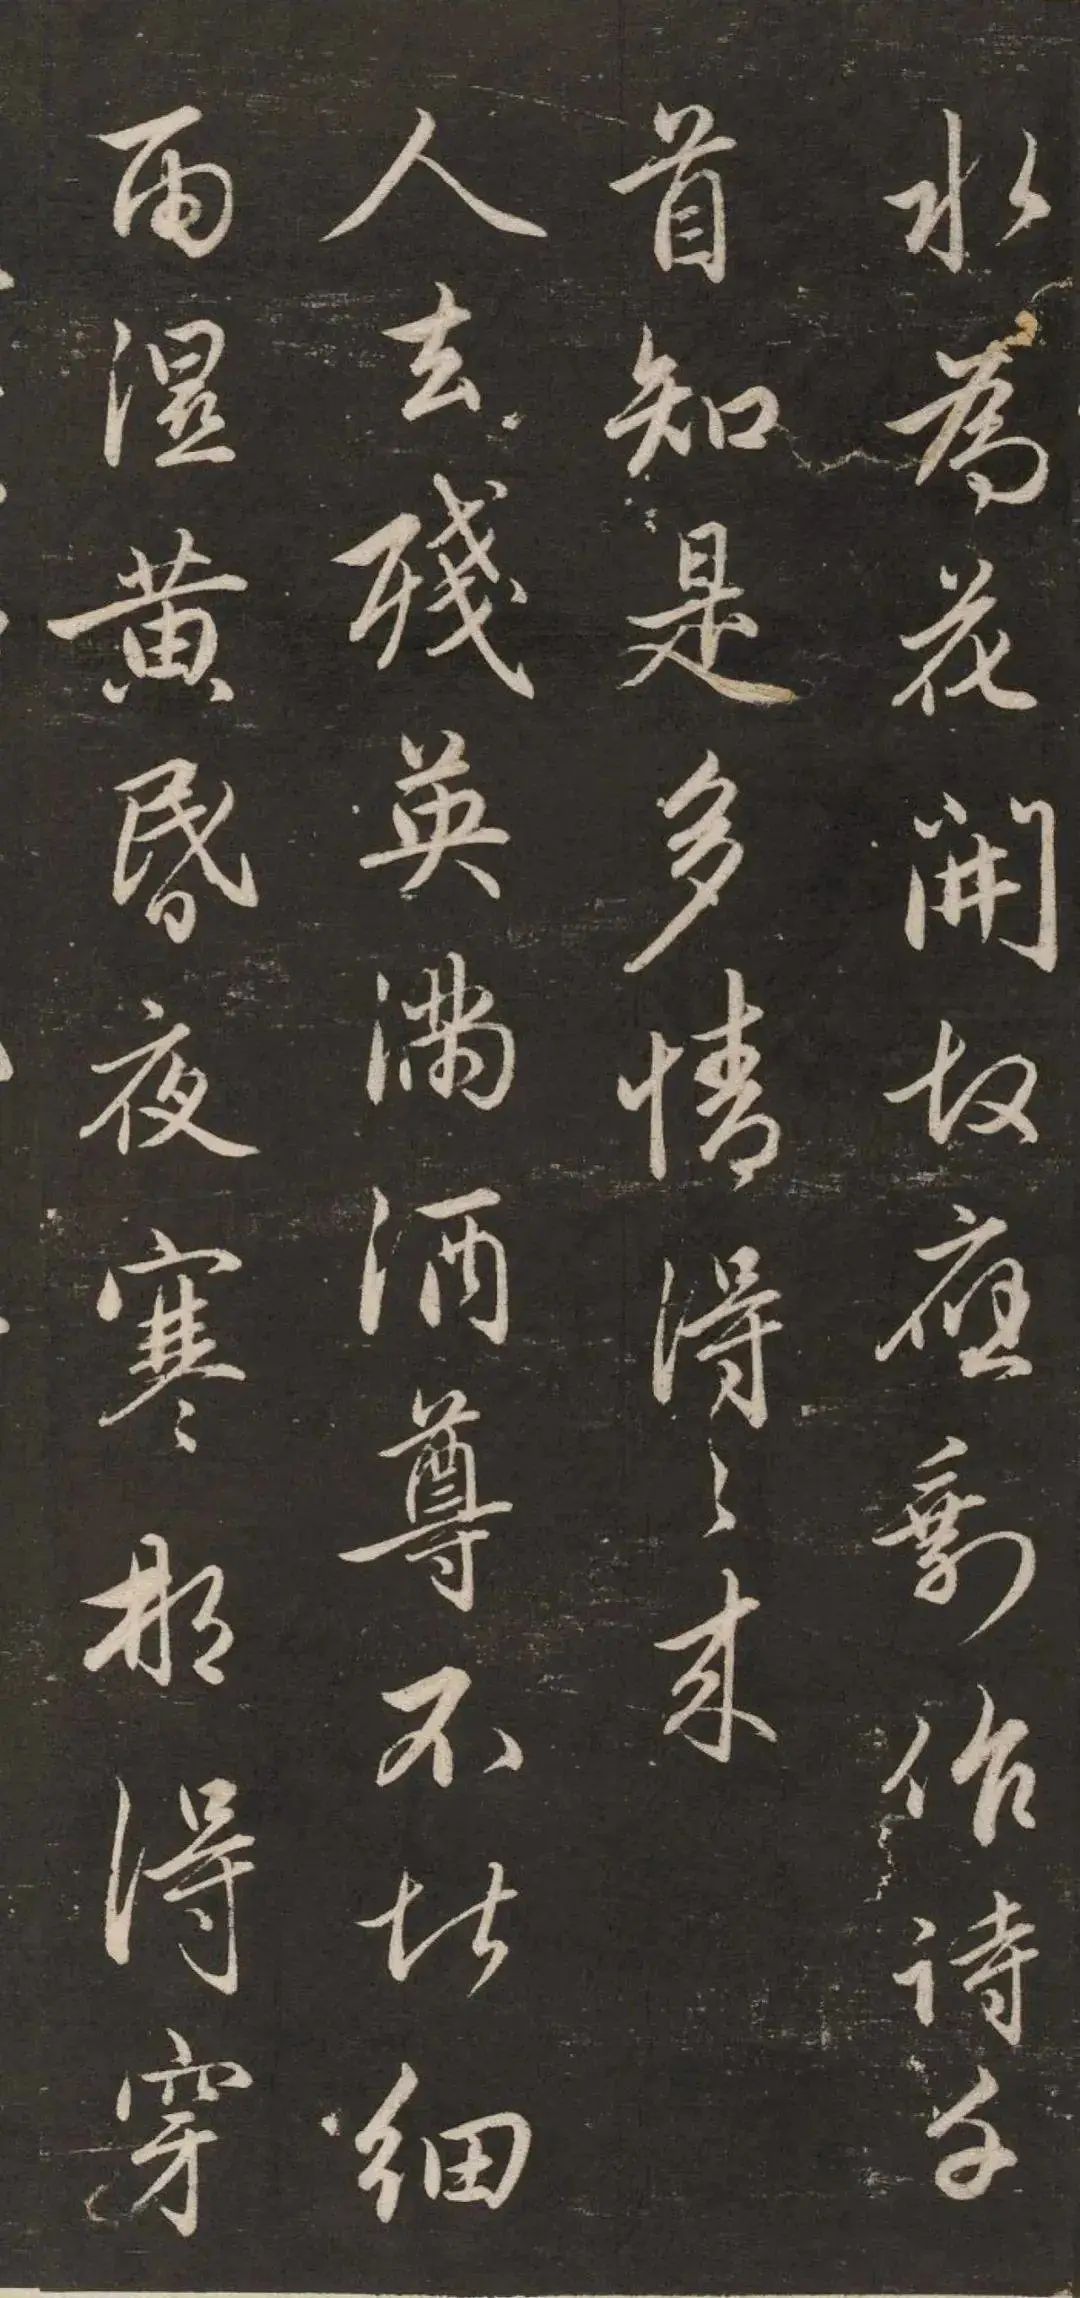 水為花開故應剩作詩千
首知是多情得〻來
人去殘英滿酒尊不堪細
雨濕黃昏夜寒那得穿